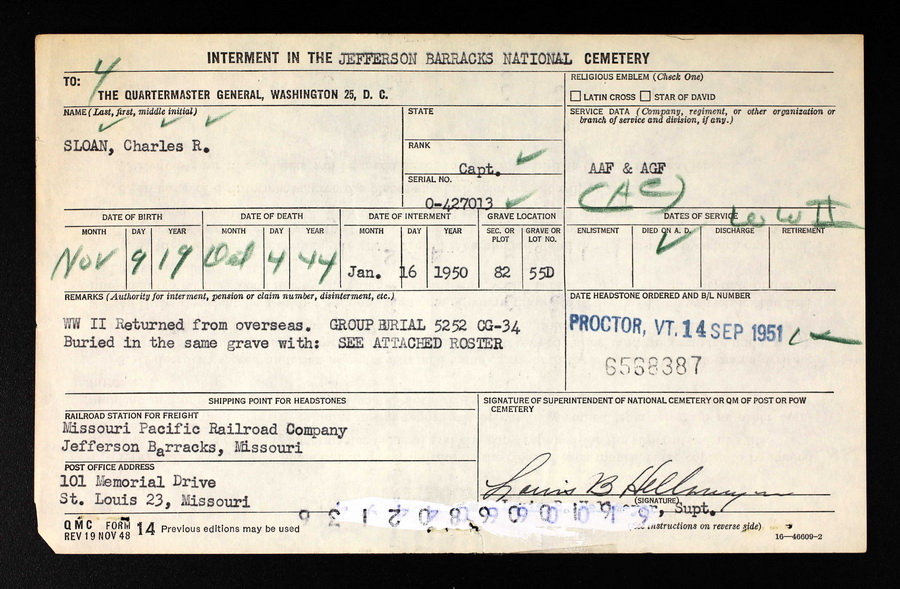 INTERMENT IN THE JEFFERSON BARRACKS NATIONAL CEMETERY
TO: 4
THE QUARTERMASTER GENERAL, WASHINGTON 25, D. C.
RELIGIOUS EMBLEM (Check One)
LATIN CROSS STAR OF DAVID
NAME (Last, first, middle initial)
SLOAN, Charles R.
STATE
RANK
Capt.
SERIAL NO.
O-427013
SERVICE DATA (Company, regiment, or other organization or
branch of service and division, if any.)
AAF & AGF
(AC)
WW II
DATE OF BIRTH
MONTH DAY YEAR
Nov 9 19
DATE OF DEATH
MONTH DAY YEAR
Oct 4 44
DATE OF INTERMENT
MONTH DAY YEAR
Jan. 16 1950
GRAVE LOCATION
SEC. OR PLOT GRAVE OR LOT NO.
82 55D
DATES OF SERVICE
ENLISTMENT DIED ON A. D. DISCHARGE RETIREMENT
REMARKS (Authority for interment, pension or claim number, disinterment, etc.)
WW II Returned from overseas. GROUP BURIAL 5252 CG-34
Buried in the same grave with: SEE ATTACHED ROSTER
DATE HEADSTONE ORDERED AND B/L NUMBER
PROCTOR, VT. 14 SEP 1951
6568387
SHIPPING POINT FOR HEADSTONES
RAILROAD STATION FOR FREIGHT
Missouri Pacific Railroad Company
Jefferson Barracks, Missouri
POST OFFICE ADDRESS
101 Memorial Drive
St. Louis 23, Missouri
SIGNATURE OF SUPERINTENDENT OF NATIONAL CEMETERY OR QM OF POST OR POW
CEMETERY
Louis B Hellmeyer
(SIGNATURE)
, Supt.
instructions on reverse side)
QMC FORM 14 Previous editions may be used
REV 19 NOV 48
16—46609-2